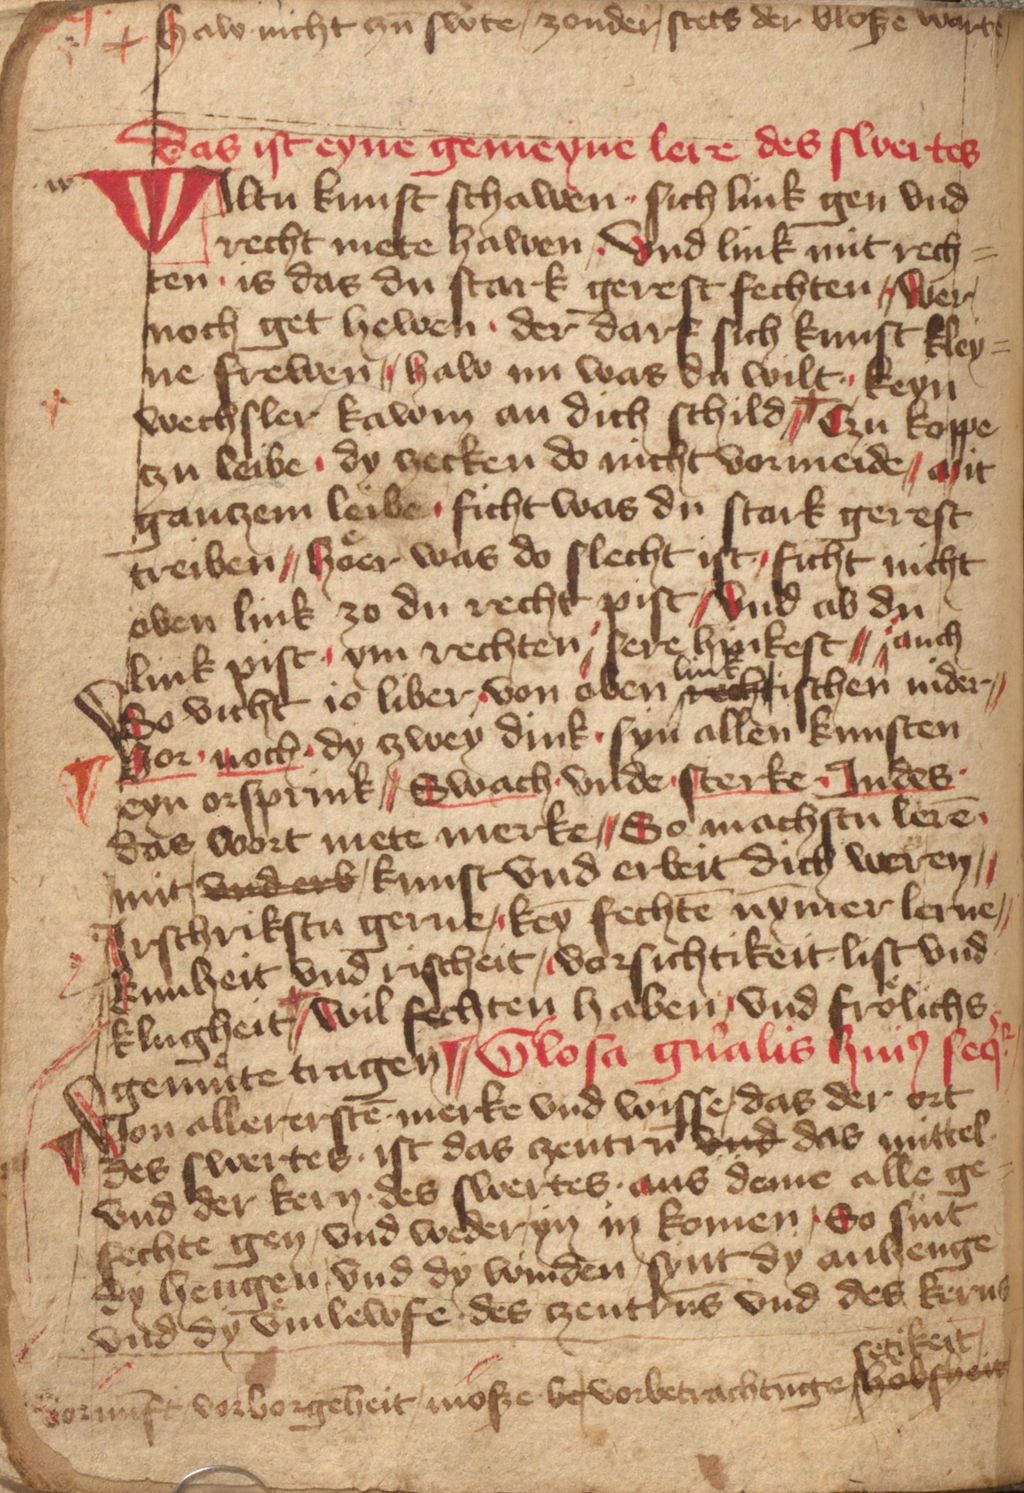 Haw nicht czu swerte / zonder / stets der blosse warte /
Das ist eyne gemeyne lere des swertes
Wiltu kunst schawen · sich link gen vnd
recht mete hawen · Vnd link mit rech=
ten · is das du stark gerest fechten // Wer
noch get hewen · der darf sich kunst kley=
ne frewen // Haw nu was du wilt · keyn
wechsler kawm an dich schild // Czu koppe
zu leibe · dy zecken do nicht vormeide // mit
ganczem leibe · ficht was du stark gerest
treiben // Hoer was do slecht ist · ficht nicht
oben link zo du recht pist / Vnd ab du
link pist · ym rechten / sere hinkest // auch
link
So vicht io liber von oben recht ischen nider //
Vor · noch · dy zwey dink · syn allen kunsten
eyn orsprink // Swach · vnde · sterke · Indes ·
das wort mete merke // So machstu lerē ·
mit vnd erb / kunst vnd erbeit dich weren //
Irschrikstu gerne / key̅ fechtē ny̅mer lerne //
Kunheit vnd rischeit / vorsichtikeit list vnd
klugheit // wil fechten haben / vnd frölichs
gemüte tragen // Glosa gn̅alis hui9 seqr
Von allererstē merke vnd wisse / das der ort
des swertes · ist das zentrū vnd das mittel ·
vnd der kern · des swertes · aus deme alle ge=
fechte gen / vnd weder yn in komen / So sint
dy hengen / vnd dy winden / synt dy anhenge
vnd dy vmlewfe · des zentrūs vnd des kerns
setikeit /
vornūft / vorborgēheit / mosse be vorbetrachtūge / hobsheit